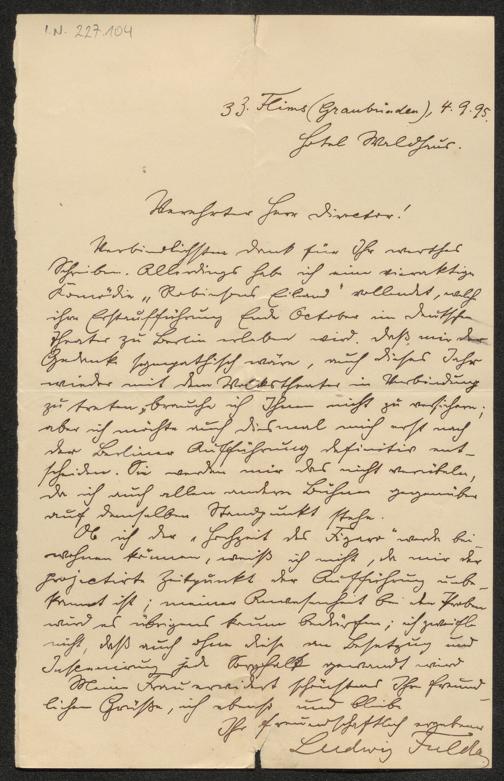 I.N. 227.104
z. Z. Flims (Graubünden), 4.9.95.
Hotel Waldhaus.
Verehrter Herr Director!
Verbindlichsten Dank für Ihr werthes
Schreiben. Allerdings habe ich eine vieraktige
Komödie „Robinsons Eiland" vollendet, welche
ihre Erstaufführung Ende October im Deutschen
Theater zu Berlin erleben wird. Daß mir der
Gedanke sympathisch wäre, auch dieses Jahr
wieder mit dem Volkstheater in Verbindung
zu treten, brauche ich Ihnen nicht zu versichern;
aber ich möchte auch diesmal mich erst nach
der Berliner Aufführung definitiv ent-
scheiden. Sie werden mir das nicht verübeln,
da ich auch allen andern Bühnen gegenüber
auf demselben Standpunkt stehe.
Ob ich der „Hochzeit des Figaro" werde bei-
wohnen können, weiß ich nicht, da mir der
projectirte Zeitpunkt der Aufführung unbe-
kannt ist; meiner Anwesenheit bei den Proben
wird es übrigens kaum bedürfen; ich zweifle
nicht, daß auch ohne diese an Besetzung und
Inscenirung jede Sorgfalt gewandt wird
Meine Frau erwidert schönstens Ihre freund-
lichen Grüße, ich ebenso und bleibe
Ihr freundschaftlich ergebener
Ludwig Fulda